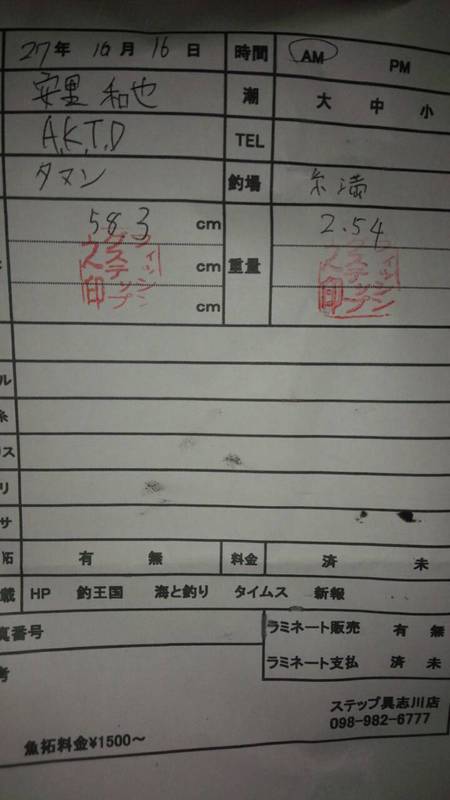 27年 10月 16日 時間 AM PM
安里 和也 潮 大 中 小
A.K.T.D TEL
タマン 釣場 糸満
58.3 cm 重量 2.54
cm
cm
フィッシング ステップ 印
フィッシング ステップ 印
ル
糸
ス
リ
サ
拓 有 無 料金 済 未
蔵 HP 釣王国 海と釣り タイムス 新報
真番号 ラミネート販売 有 無
考 ラミネート支払 済 未
ステップ具志川店
098-982-6777
魚拓料金¥1500～